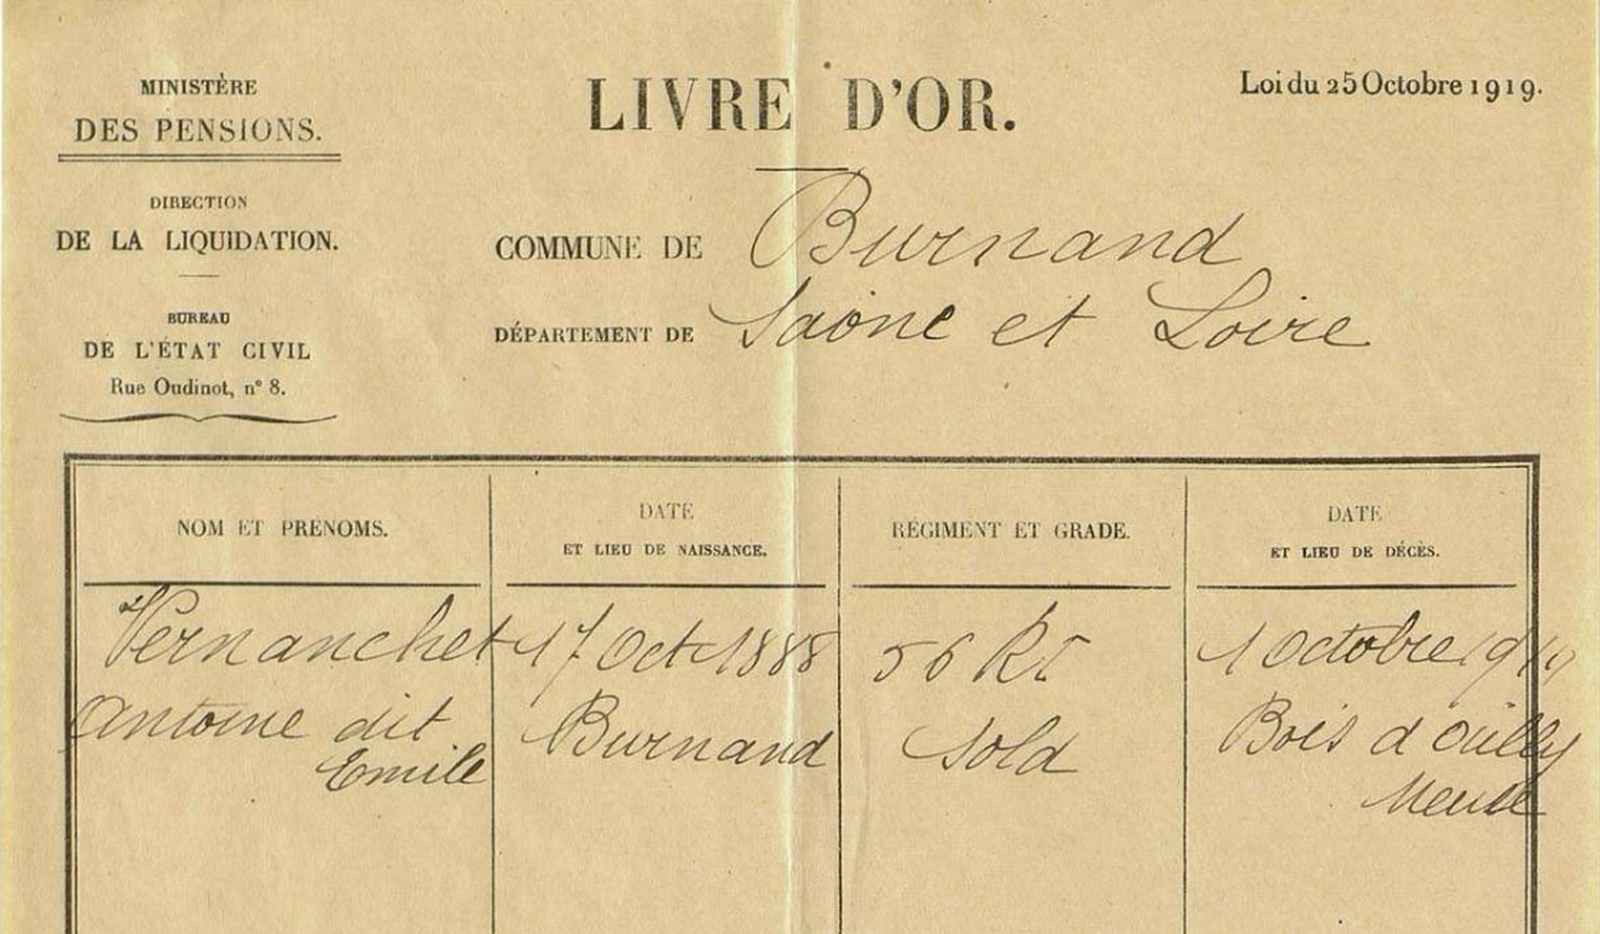 MINISTÈRE
DES PENSIONS.
DIRECTION
DE LA LIQUIDATION.
BUREAU
DE L'ÉTAT CIVIL
Rue Oudinot, n° 8.
LIVRE D'OR.
Loi du 25 Octobre 1919.
COMMUNE DE Burnand
DÉPARTEMENT DE Saône et Loire
NOM ET PRÉNOMS.
DATE
ET LIEU DE NAISSANCE.
RÉGIMENT ET GRADE.
DATE
ET LIEU DE DÉCÈS.
Vernanchet 17 Oct 1888 56 RI 1 Octobre
Antoine dit Burnand Sold Bois d'Ailly
Emile Meuse